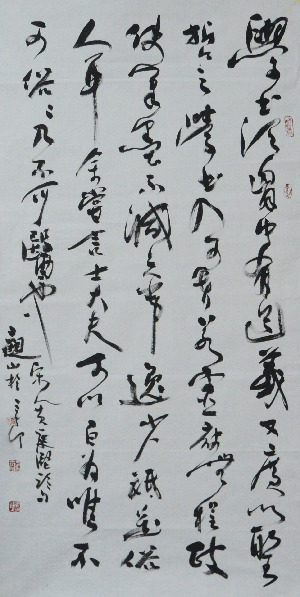 學書須胸中有道義又廣以聖
哲之學書乃可貴若其靈府無程政
使筆墨不減元常逸少祇是俗
人耳余嘗言士大夫可以百為唯不
可俗俗乃不可醫也
宋人黃庭堅論書句